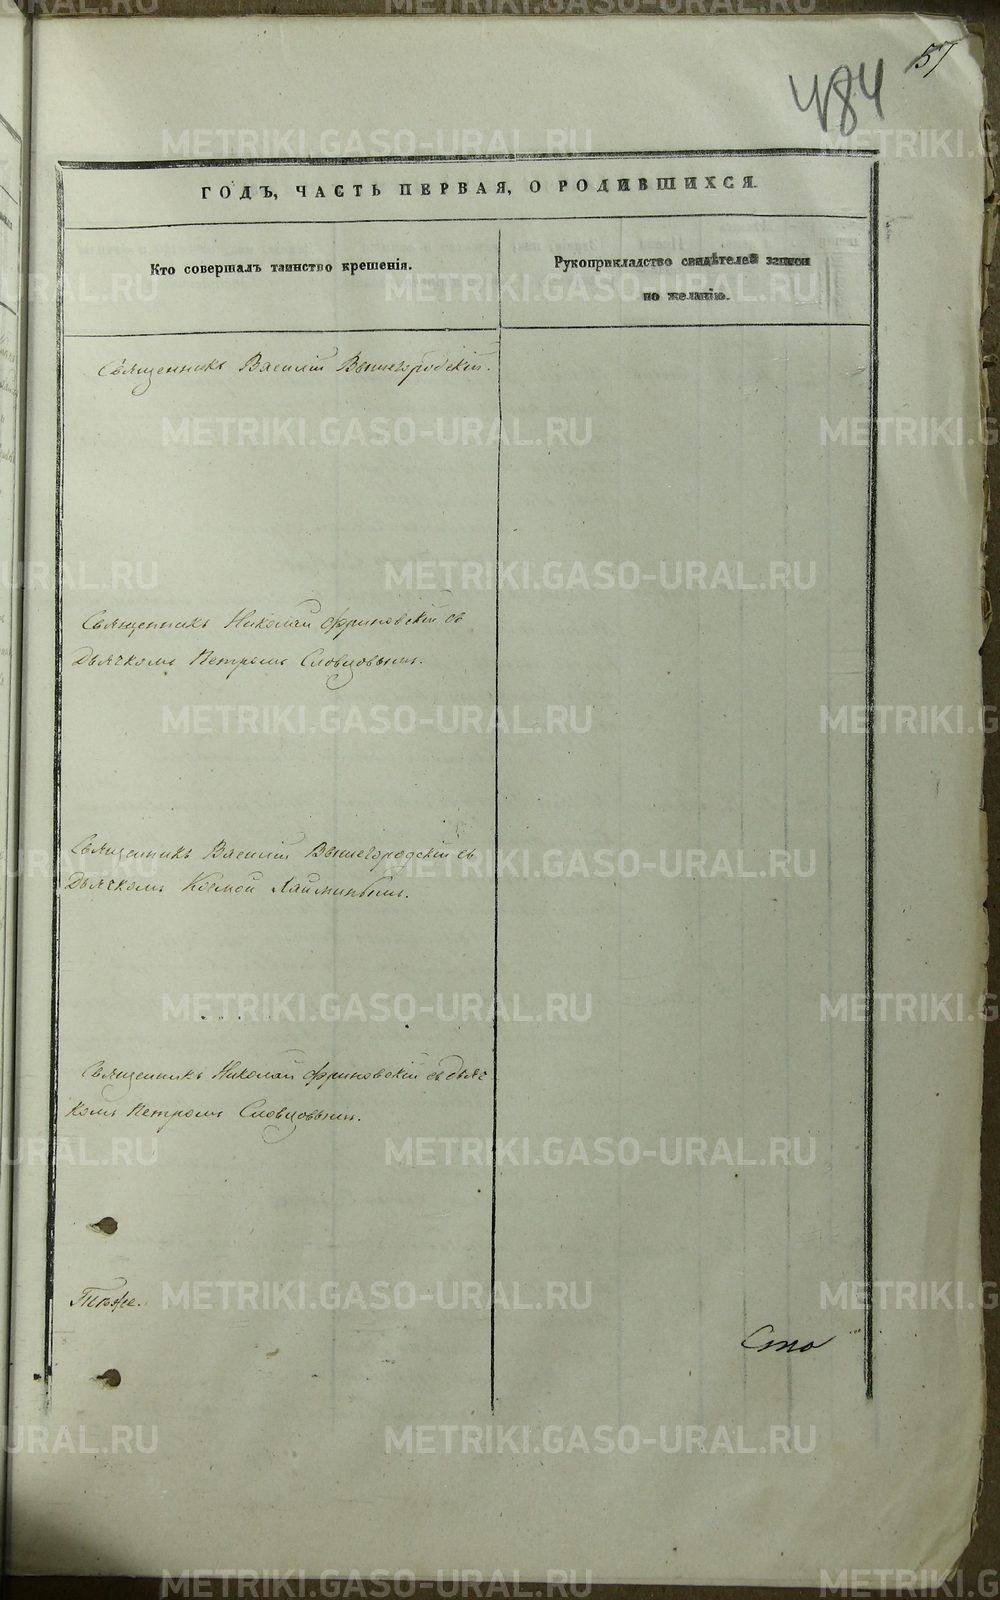 57
484
ГОДЪ, ЧАСТЬ ПЕРВАЯ, О РОДИВШИХСЯ.
Кто совершалъ таинство крешенія.
Рукоприкладство свидѣтелей записи
по желанію.
Священникъ Василій Вышегородскій.
Священникъ Николай Фриновскій съ
Дьячкомъ Петромъ Словцовымъ.
Священникъ Василій Вышегородскій съ
Дьячкомъ Космой
Священникъ Николай Фриновскій съ дьяч
комъ Петромъ Словцовымъ.
Тѣже.
Сто
METRIKI.GASO-URAL.RU